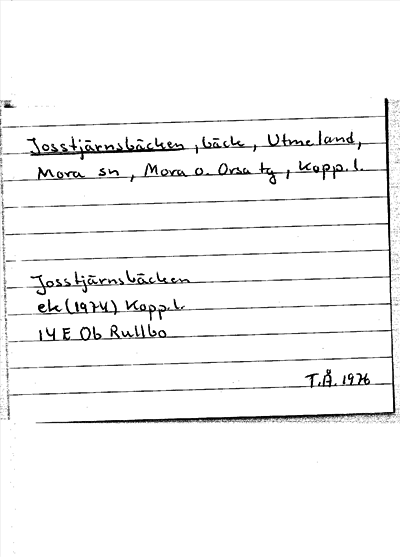 Josstjärnsbäcken, bäck, Utmeland,
Mora sn, Mora o. Orsa tg, Kopp. l.
Josstjärnsbäcken
ek (1974) Kopp. l.
14 E 0b Rullbo
T.Å. 1976